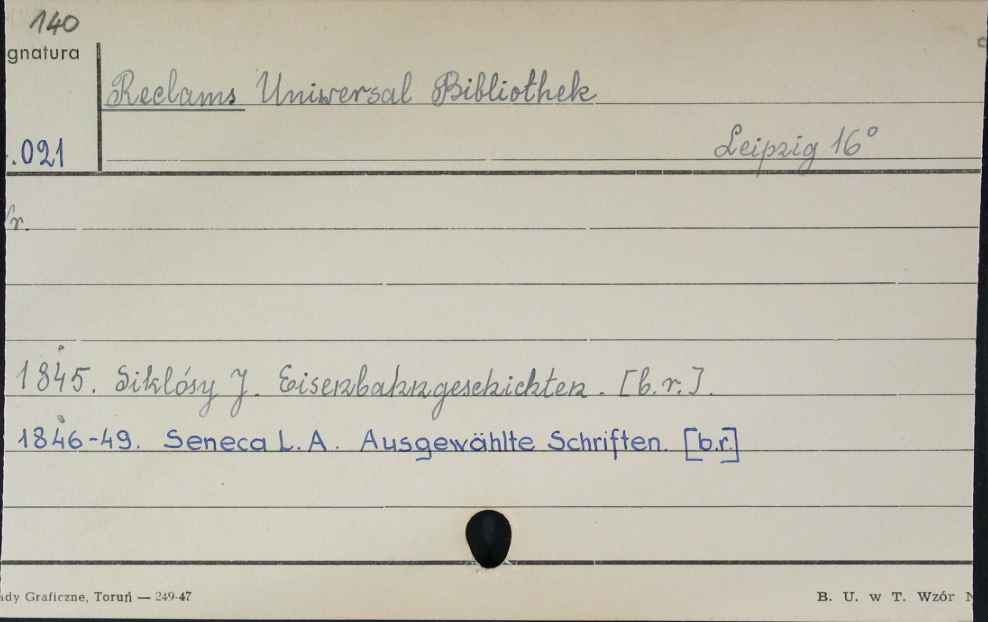 140
gnatura
Reclams Uniwersal Bibliothek
.021
Leipzig 16°
r.
1845. Siklósy J. Eisenbahngeschichten. [b.r.].
1846-49. Seneca L.A. Ausgewählte Schriften. [b.r.]
ady Graficzne, Toruń — 249-47
B. U. w T. Wzór N